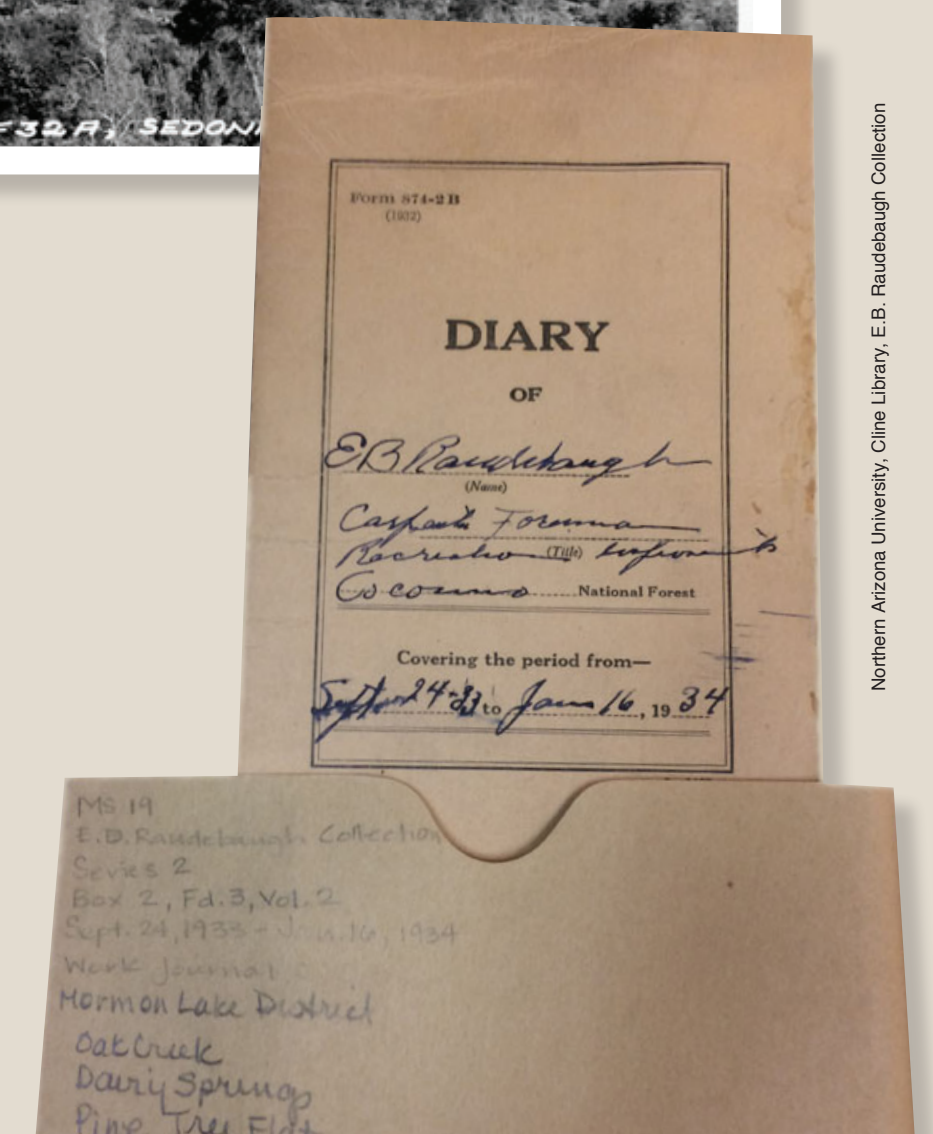 =32A, SEDON
Form 874-2B
(1932)
DIARY
OF
E B Raudebaugh
(Name)
Foreman
Recreation (Title)
Coconino National Forest
Covering the period from—
Sept 24-33 to Jan 16, 1934
MS 19
E.B. Raudebaugh Collection
Series 2
Box 2, Fd. 3, Vol. 2
Sept. 24, 1933 - Jan. 16, 1934
Work Journal
Mormon Lake District
Oak Creek
Dairy Springs
Pine Tree Flat
Northern Arizona University, Cline Library, E.B. Raudebaugh Collection